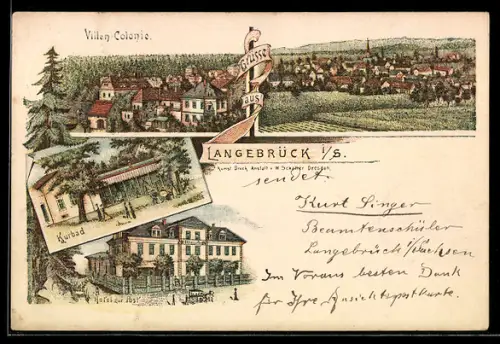 Villen-Colonie.
Grüsse
aus
LANGEBRÜCK i/S.
Kunst Druck Anstalt v. W. Schäffer Dresden.
sendet
Kurbad
Kurt Singer
Beamtenschüler
Langebrück i/Sachsen
Im Voraus besten Dank
für Ihre Ansichtspostkarte.
Hotel zur Post